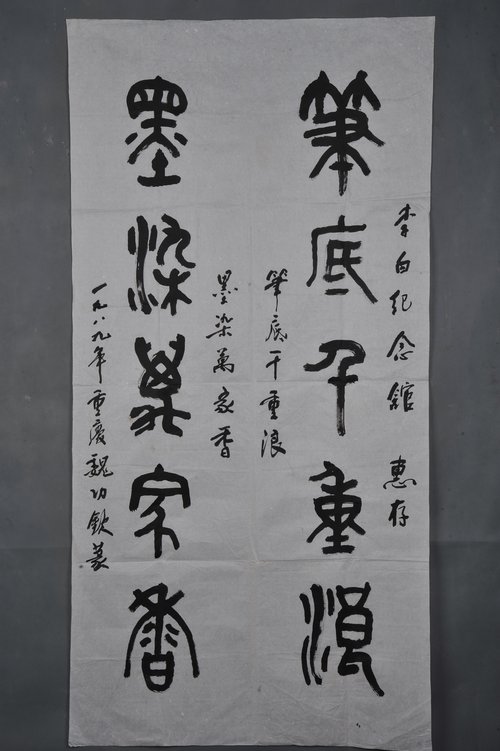 李白纪念馆 惠存
筆底千重浪
筆底千重浪
墨染萬家香
墨染萬家香
一九八九年重慶魏功钦篆